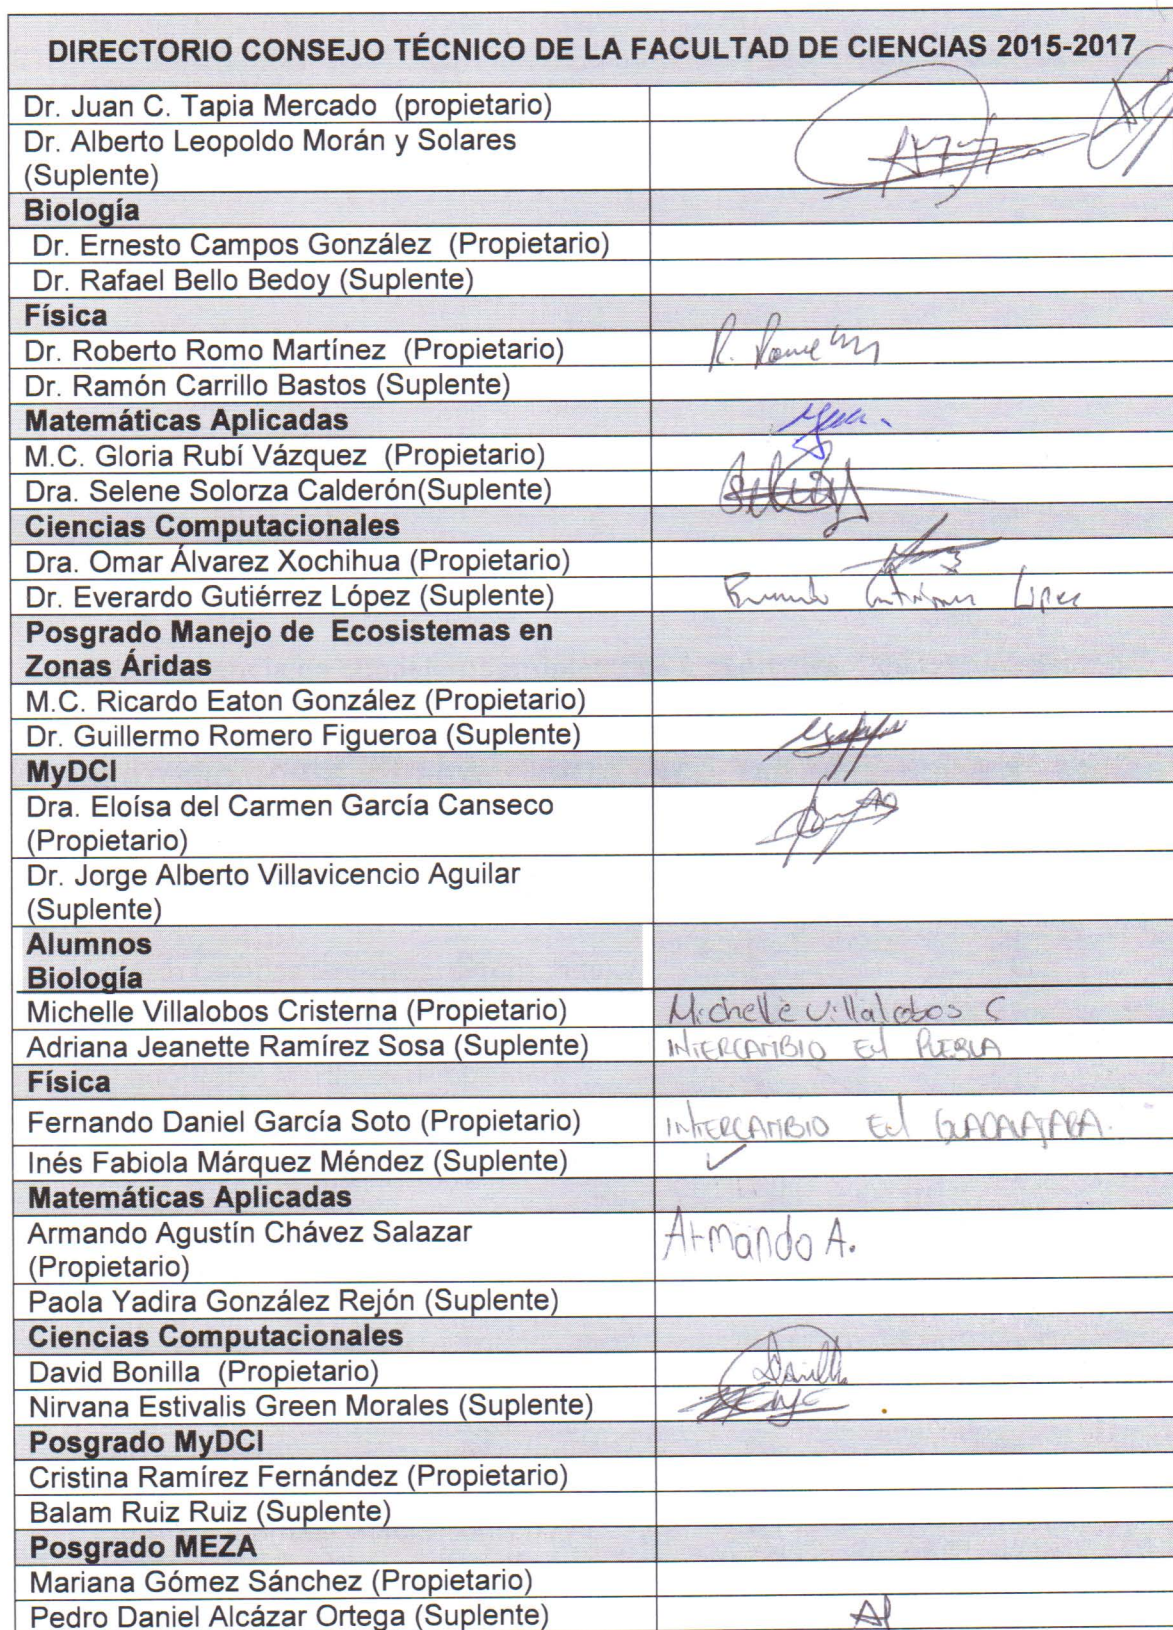 DIRECTORIO CONSEJO TÉCNICO DE LA FACULTAD DE CIENCIAS 2015-2017
Dr. Juan C. Tapia Mercado (propietario)
Dr. Alberto Leopoldo Morán y Solares
(Suplente)
Biología
Dr. Ernesto Campos González (Propietario)
Dr. Rafael Bello Bedoy (Suplente)
Física
Dr. Roberto Romo Martínez (Propietario)
Dr. Ramón Carrillo Bastos (Suplente)
Matemáticas Aplicadas
M.C. Gloria Rubí Vázquez (Propietario)
Dra. Selene Solorza Calderón(Suplente)
Ciencias Computacionales
Dra. Omar Álvarez Xochihua (Propietario)
Dr. Everardo Gutiérrez López (Suplente) Gutiérrez López
Posgrado Manejo de Ecosistemas en
Zonas Áridas
M.C. Ricardo Eaton González (Propietario)
Dr. Guillermo Romero Figueroa (Suplente)
MyDCI
Dra. Eloísa del Carmen García Canseco
(Propietario)
Dr. Jorge Alberto Villavicencio Aguilar
(Suplente)
Alumnos
Biología
Michelle Villalobos Cristerna (Propietario) Michelle Villalobos C
Adriana Jeanette Ramírez Sosa (Suplente) INTERCAMBIO EN PUEBLA
Física
Fernando Daniel García Soto (Propietario) INTERCAMBIO EN GUADALAJARA.
Inés Fabiola Márquez Méndez (Suplente) ✓
Matemáticas Aplicadas
Armando Agustín Chávez Salazar Armando A.
(Propietario)
Paola Yadira González Rejón (Suplente)
Ciencias Computacionales
David Bonilla (Propietario)
Nirvana Estivalis Green Morales (Suplente)
Posgrado MyDCI
Cristina Ramírez Fernández (Propietario)
Balam Ruiz Ruiz (Suplente)
Posgrado MEZA
Mariana Gómez Sánchez (Propietario)
Pedro Daniel Alcázar Ortega (Suplente)